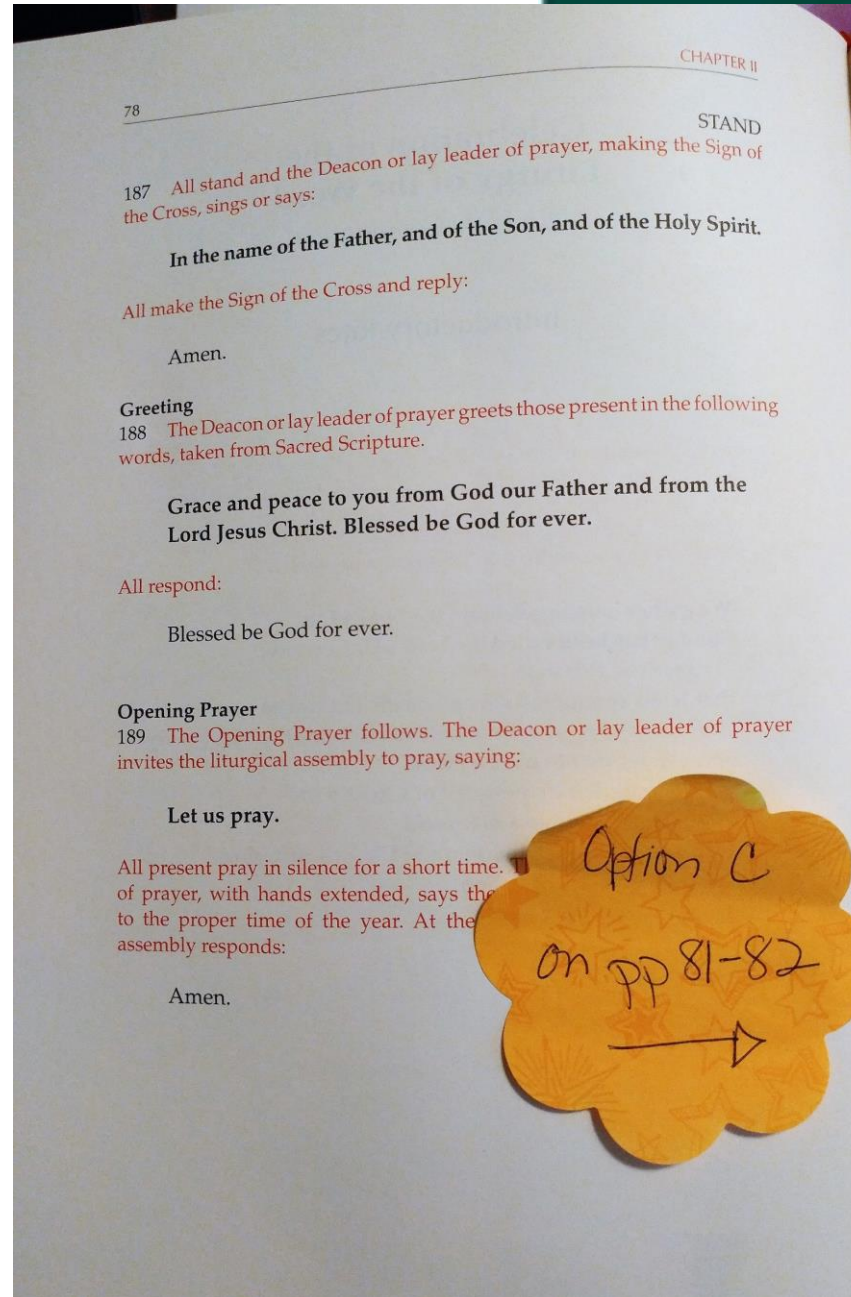 CHAPTER II
78
STAND
187 All stand and the Deacon or lay leader of prayer, making the Sign of
the Cross, sings or says:
In the name of the Father, and of the Son, and of the Holy Spirit.
All make the Sign of the Cross and reply:
Amen.
Greeting
188 The Deacon or lay leader of prayer greets those present in the following
words, taken from Sacred Scripture.
Grace and peace to you from God our Father and from the
Lord Jesus Christ. Blessed be God for ever.
All respond:
Blessed be God for ever.
Opening Prayer
189 The Opening Prayer follows. The Deacon or lay leader of prayer
invites the liturgical assembly to pray, saying:
Let us pray.
All present pray in silence for a short time.
of prayer, with hands extended, says the
to the proper time of the year. At the
assembly responds:
Amen.
Option C
on pp 81-82